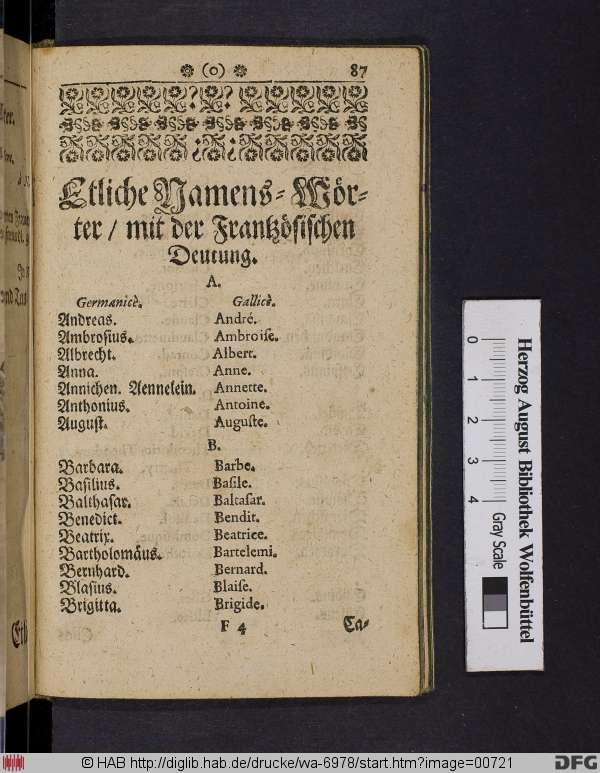 ❋ (o) ❋ 87
Etliche Namens-Wör-
ter / mit der Frantzösischen
Deutung.
A.
Germanicè. Gallicè.
Andreas. André.
Ambrosius. Ambroiſe.
Albrecht. Albert.
Anna. Anne.
Annichen. Aennelein. Annette.
Anthonius. Antoine.
August. Auguſte.
B.
Barbara. Barbe.
Basilius. Baſile.
Balthasar. Baltaſar.
Benedict. Bendit.
Beatrix. Beatrice.
Bartholomäus. Bartelemi.
Bernhard. Bernard.
Blasius. Blaiſe.
Brigitta. Brigide.
F 4 Ca-
0 1 2 3 4
Herzog August Bibliothek Wolfenbüttel
Gray Scale
© HAB http://diglib.hab.de/drucke/wa-6978/start.htm?image=00721
DFG